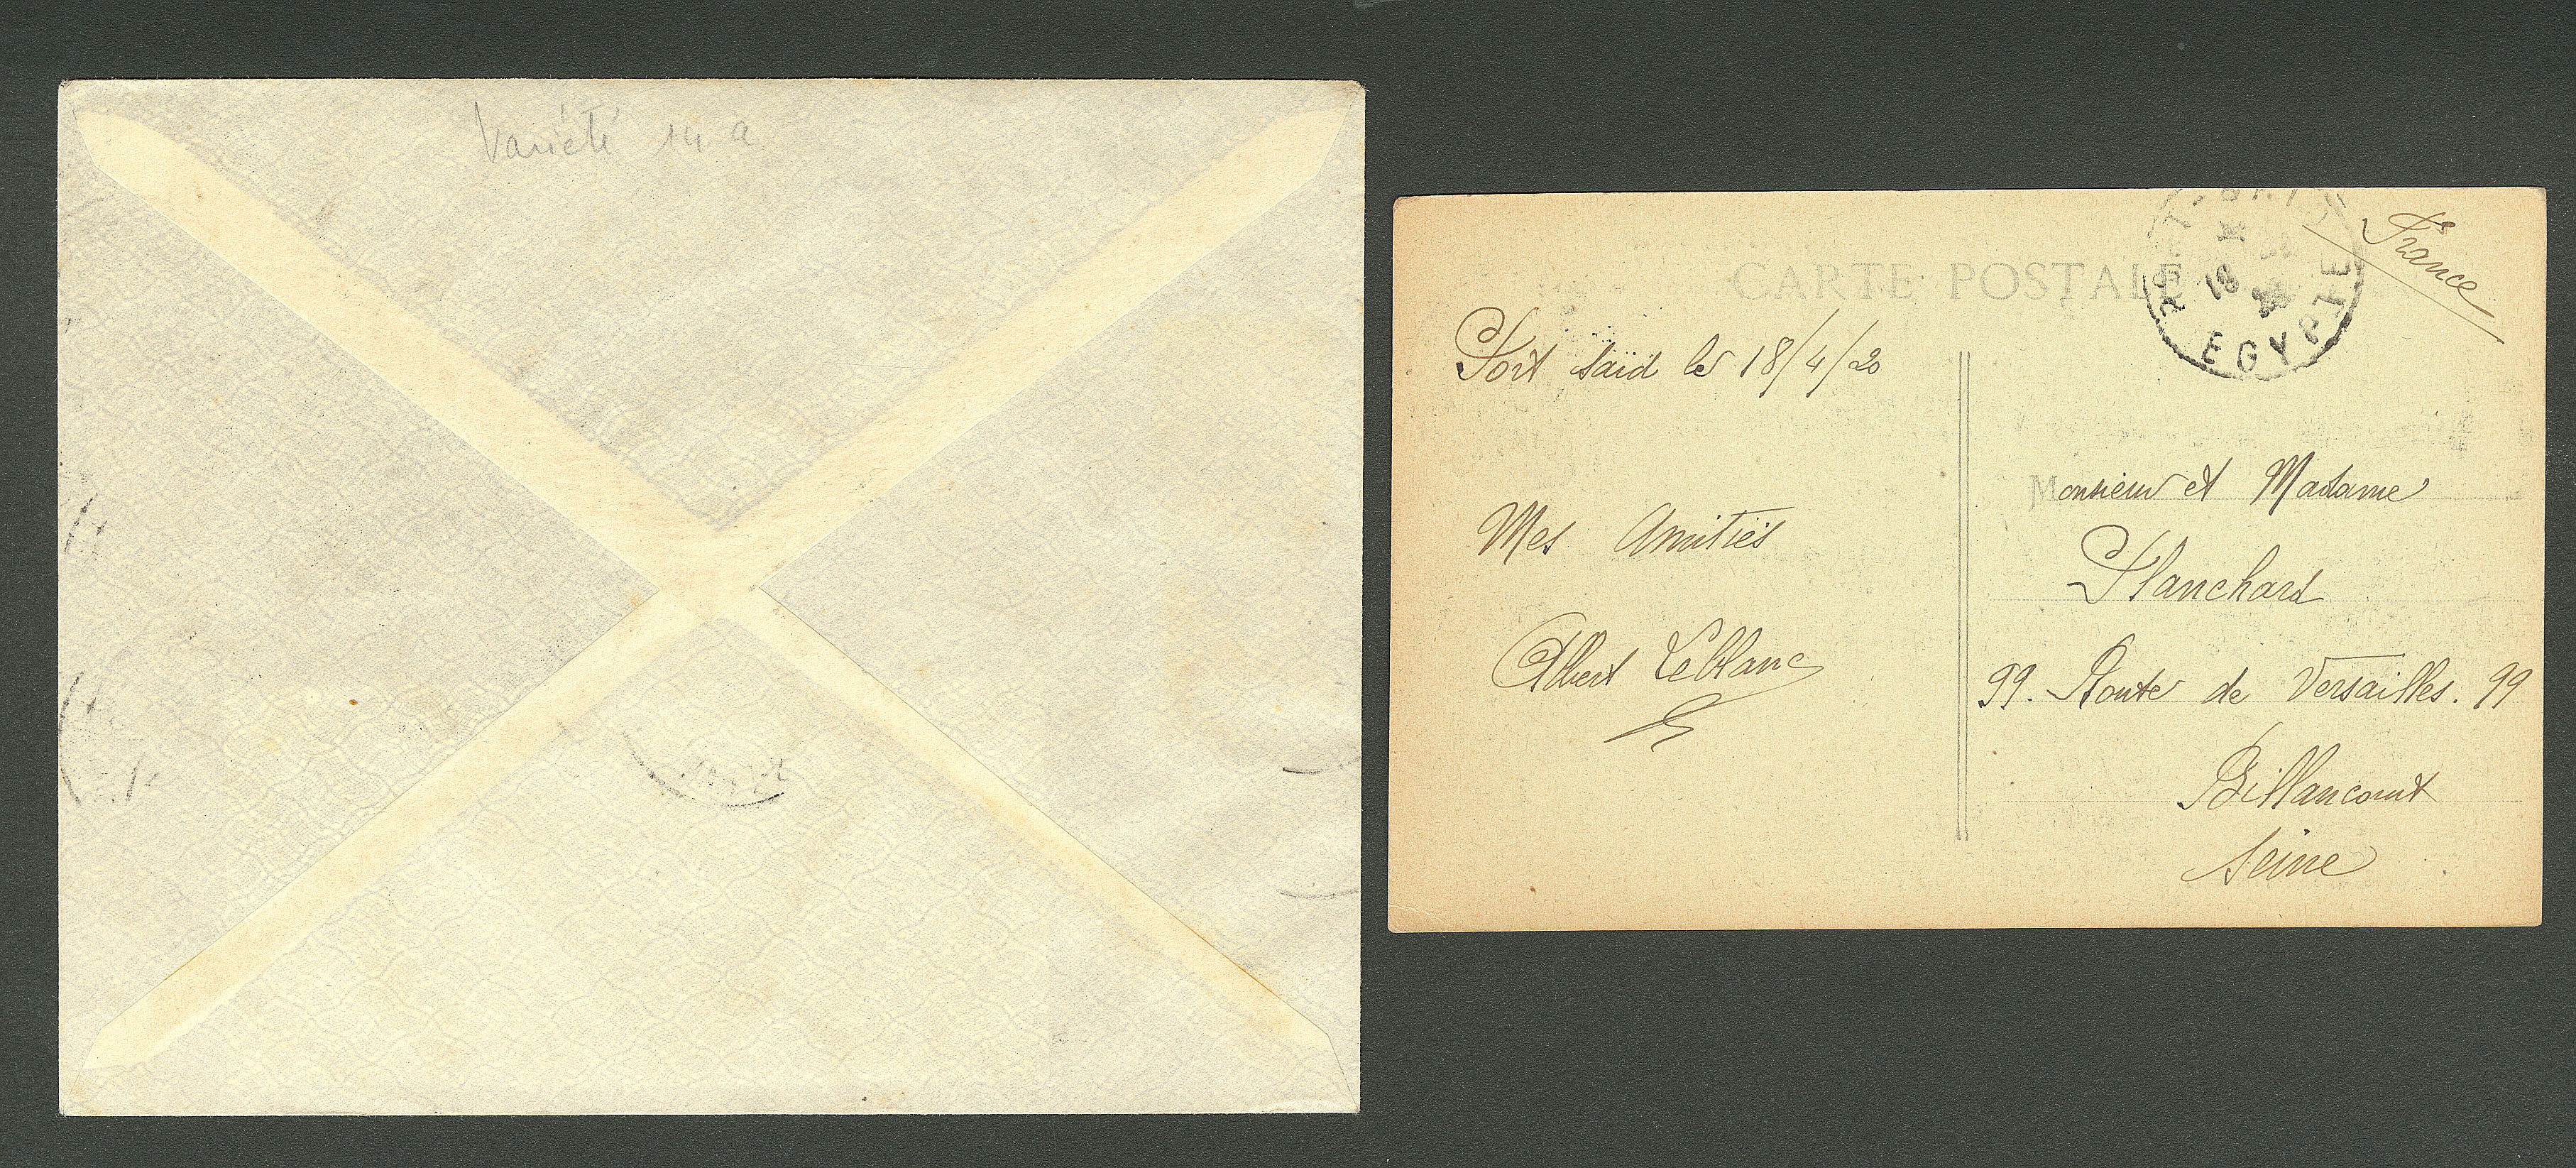 Variété 14 a
CARTE POSTALE
EGYPTE
18
France
Port Saïd le 18/4/20
Mes Amitiés
Albert Leblanc
Monsieur et Madame
Planchard
99. Route de Versailles. 99
Billancourt
Seine